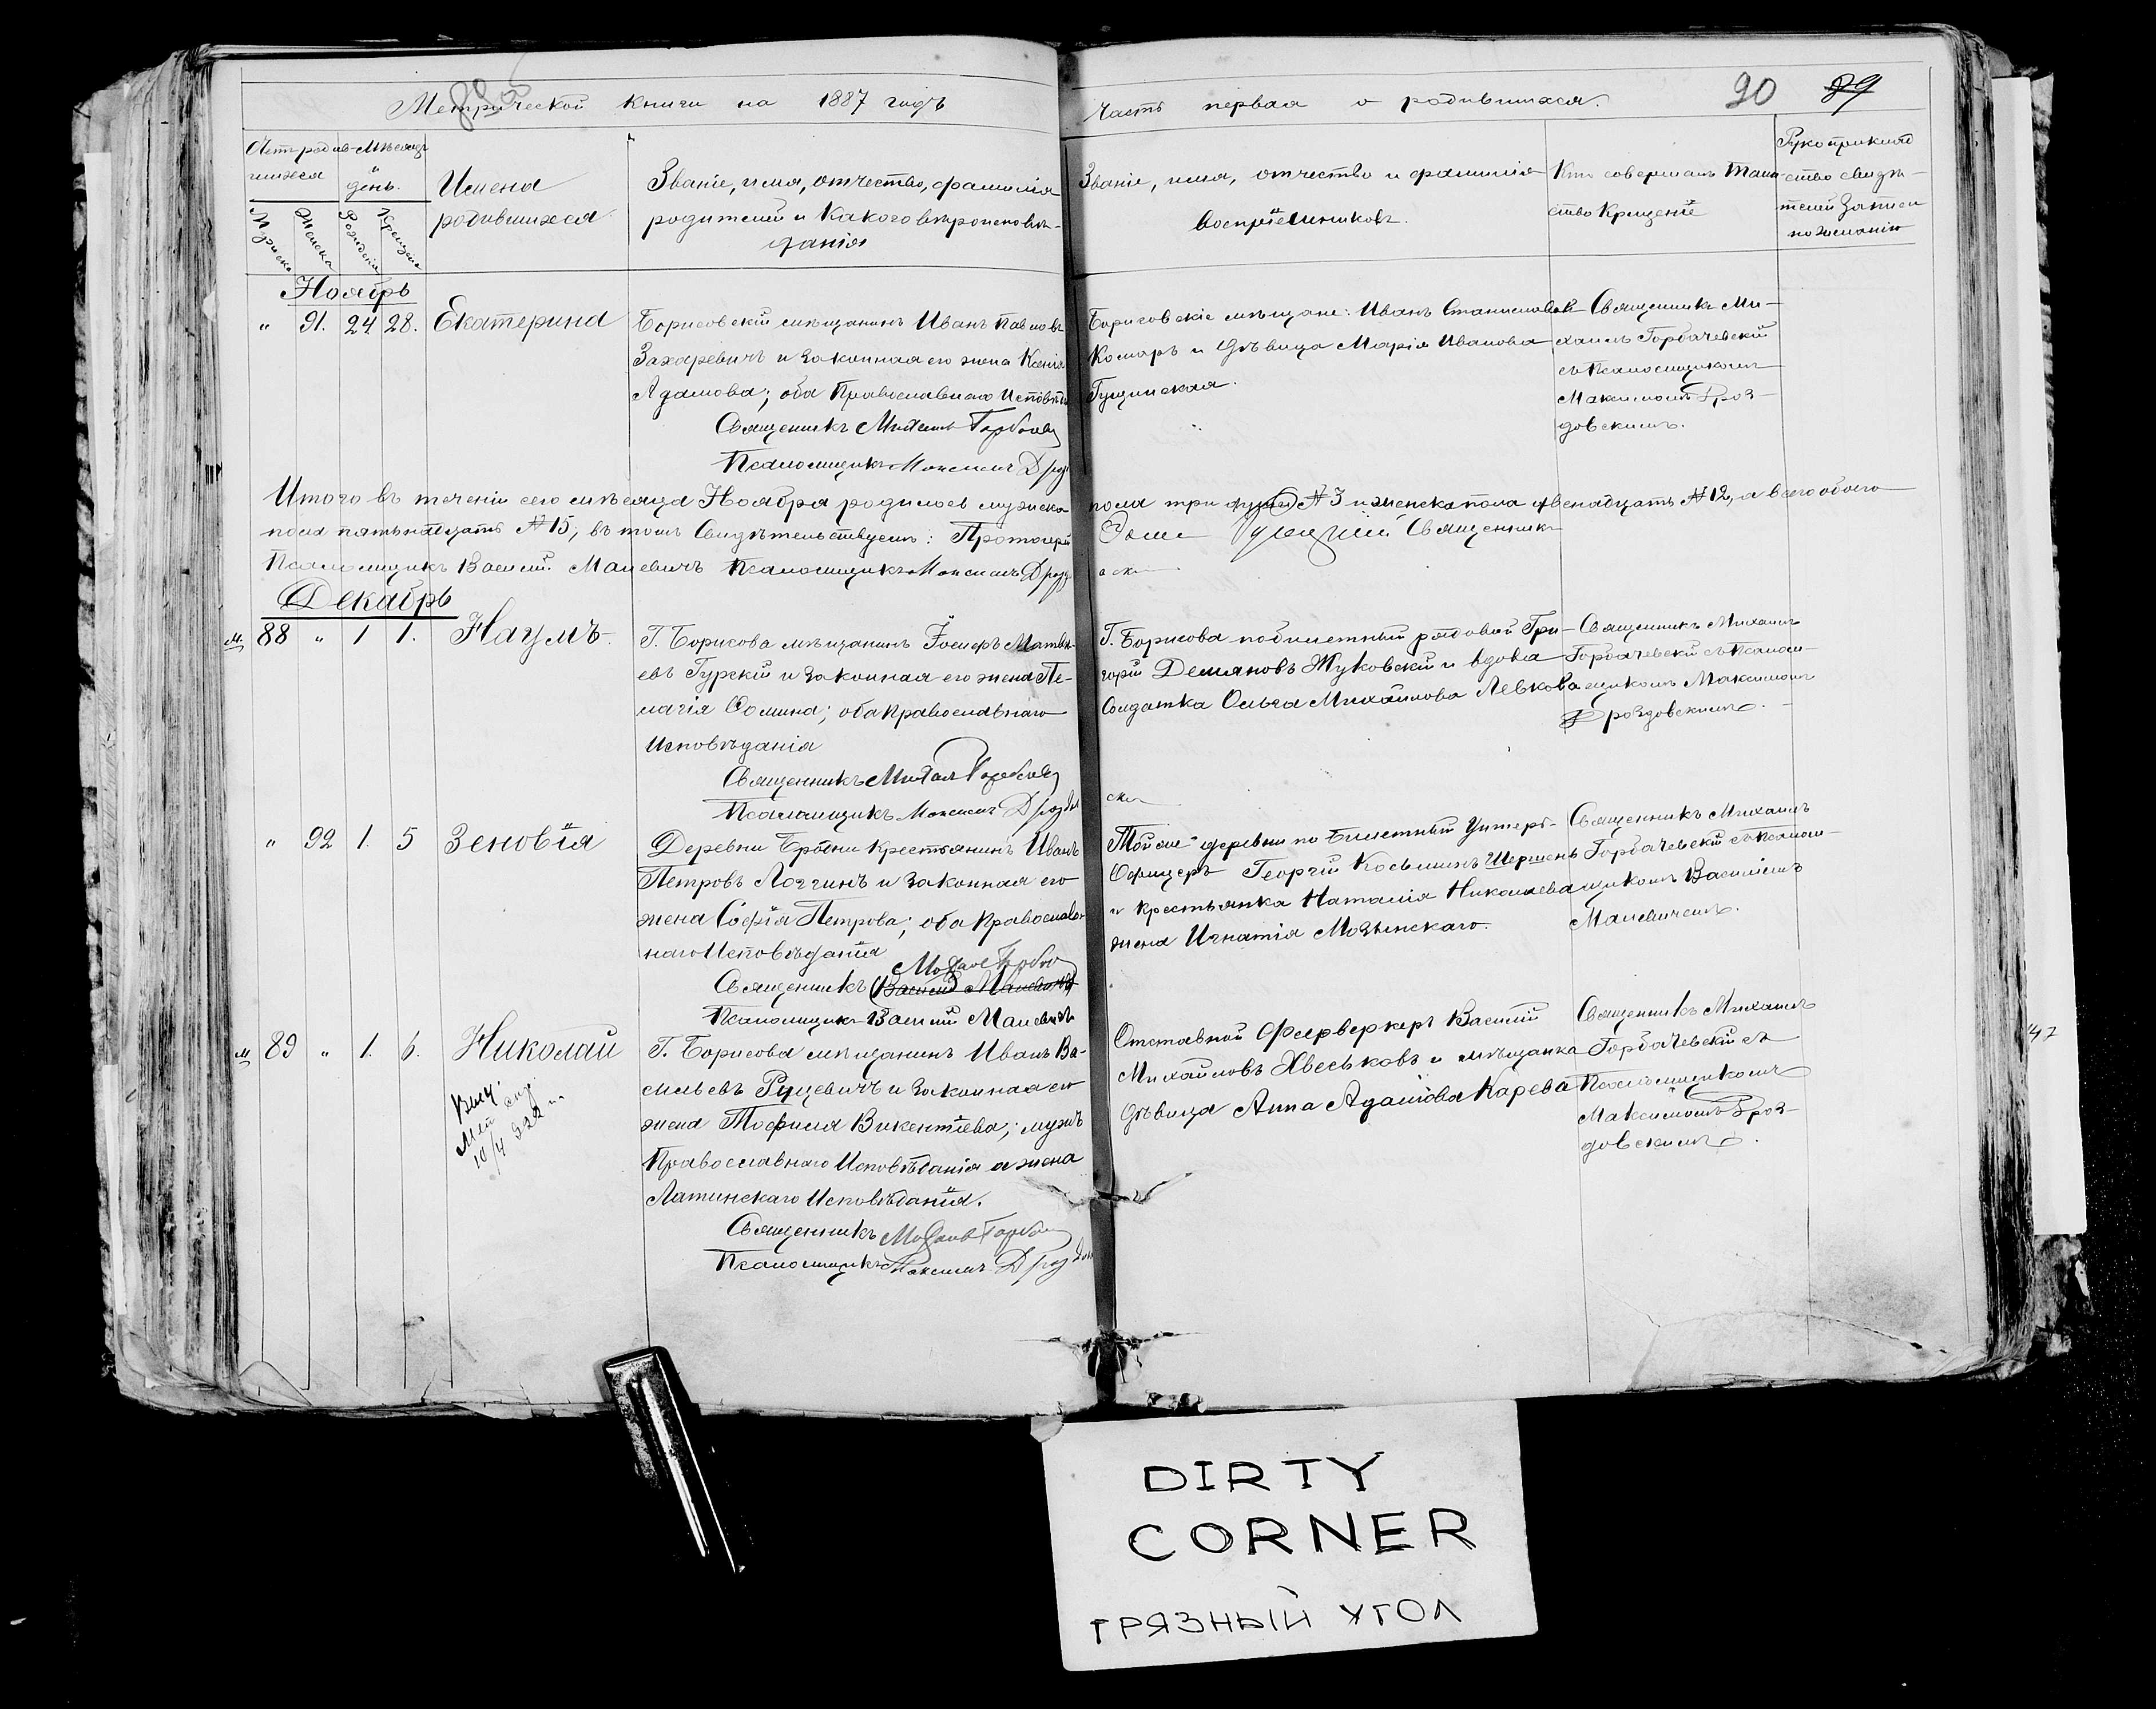 Метрической книги на 1887 годъ
Часть первая о родившихся.
90 89
Счетъ родив-
шихся
Мѣсяцъ
и
день.
Мужеска
Женска
Рожденія
Крещенія
Имена
родившихся
Званіе, имя, отчество, фамилія
родителей и какого вѣроисповѣ-
данія
Званіе, имя, отчество и фамилія
воспріемниковъ.
Кто совершалъ таин-
ство крещеніе
Рукоприклад
ство свидѣ-
телей записи
по желанію
Ноябрь
" 91. 24 28. Екатерина
Борисовскій мѣщанинъ Иванъ Павловъ
Захаревичъ и законная его жена Ксенія
Адамова; оба Православнаго Исповѣда
Священникъ Михаилъ Горбачев
Псаломщикъ Максимъ Дроз
Борисовскіе мѣщане: Иванъ Станиславовъ
Комаръ и дѣвица Марія Иванова
Гущинская.
Священникъ Ми-
хаилъ Горбачевскій
съ Псаломщикомъ
Максимомъ Дроз-
довскимъ.
Итого въ теченіи сего мѣсяца Ноября родилось мужеска пола три № 3 и женска пола двенадцать № 12, а всего обоего
пола пятьнадцать № 15; въ томъ Свидѣтельствуемъ: Протоіерей Священникъ
Псаломщикъ Василій Малевичъ Псаломщикъ Максимъ Дрозд
Декабрь
м. 88 " 1 1. Наумъ.
Г. Борисова мѣщанинъ Іосифъ Матвѣ-
евъ Гурскій и законная его жена Пе-
лагія Ѳомина; оба Православнаго
Исповѣданія
Священникъ Михаил Горбачев
Псаломщикъ Максимъ Дроздов
ски
Г. Борисова побилетный рядовой Гри-
горій Демяновъ Жуковскій и вдова
Солдатка Ольга Михайлова Левкова
Священникъ Михаилъ
Горбачевскій съ Псалом-
щикомъ Максимомъ
Дроздовскимъ.
" 92 1. 5 Зеновія
Деревни Бродни крестьянинъ Иванъ
Петровъ Логгинъ и законная его
жена Софія Петрова; оба Православ-
наго Исповѣданія
Михаил Горбач
Священникъ Василій Малевичъ
Псаломщикъ Василій Малевичъ
Той же деревни по Билетный Унтеръ-
Офицеръ Георгій Косьминъ Шершень
и крестьянка Наталія Николаева
жена Игнатія Мозынскаго.
Священникъ Михаилъ
Горбачевскій съ Псалом-
щикомъ Василіемъ
Малевичемъ.
м. 89 " 1. 6. Николай
10/4 922
Г. Борисова мѣщанинъ Иванъ Ва-
сильевъ Руцевичъ и законная его
жена Теофиля Викентіева; мужъ
Православнаго Исповѣданія а жена
Латинскаго Исповѣданія.
Священникъ Михаилъ Горбач
Псаломщикъ Максимъ Дроздов
Отставной Фейерверкеръ Василій
Михайловъ Хвеськовъ и мѣщанка
дѣвица Анна Адамова Карева
Священникъ Михаилъ
Горбачевскій съ
Псаломщикомъ
Максимомъ Дроз-
довскимъ.
47
DIRTY
CORNER
ГРЯЗНЫЙ УГОЛ